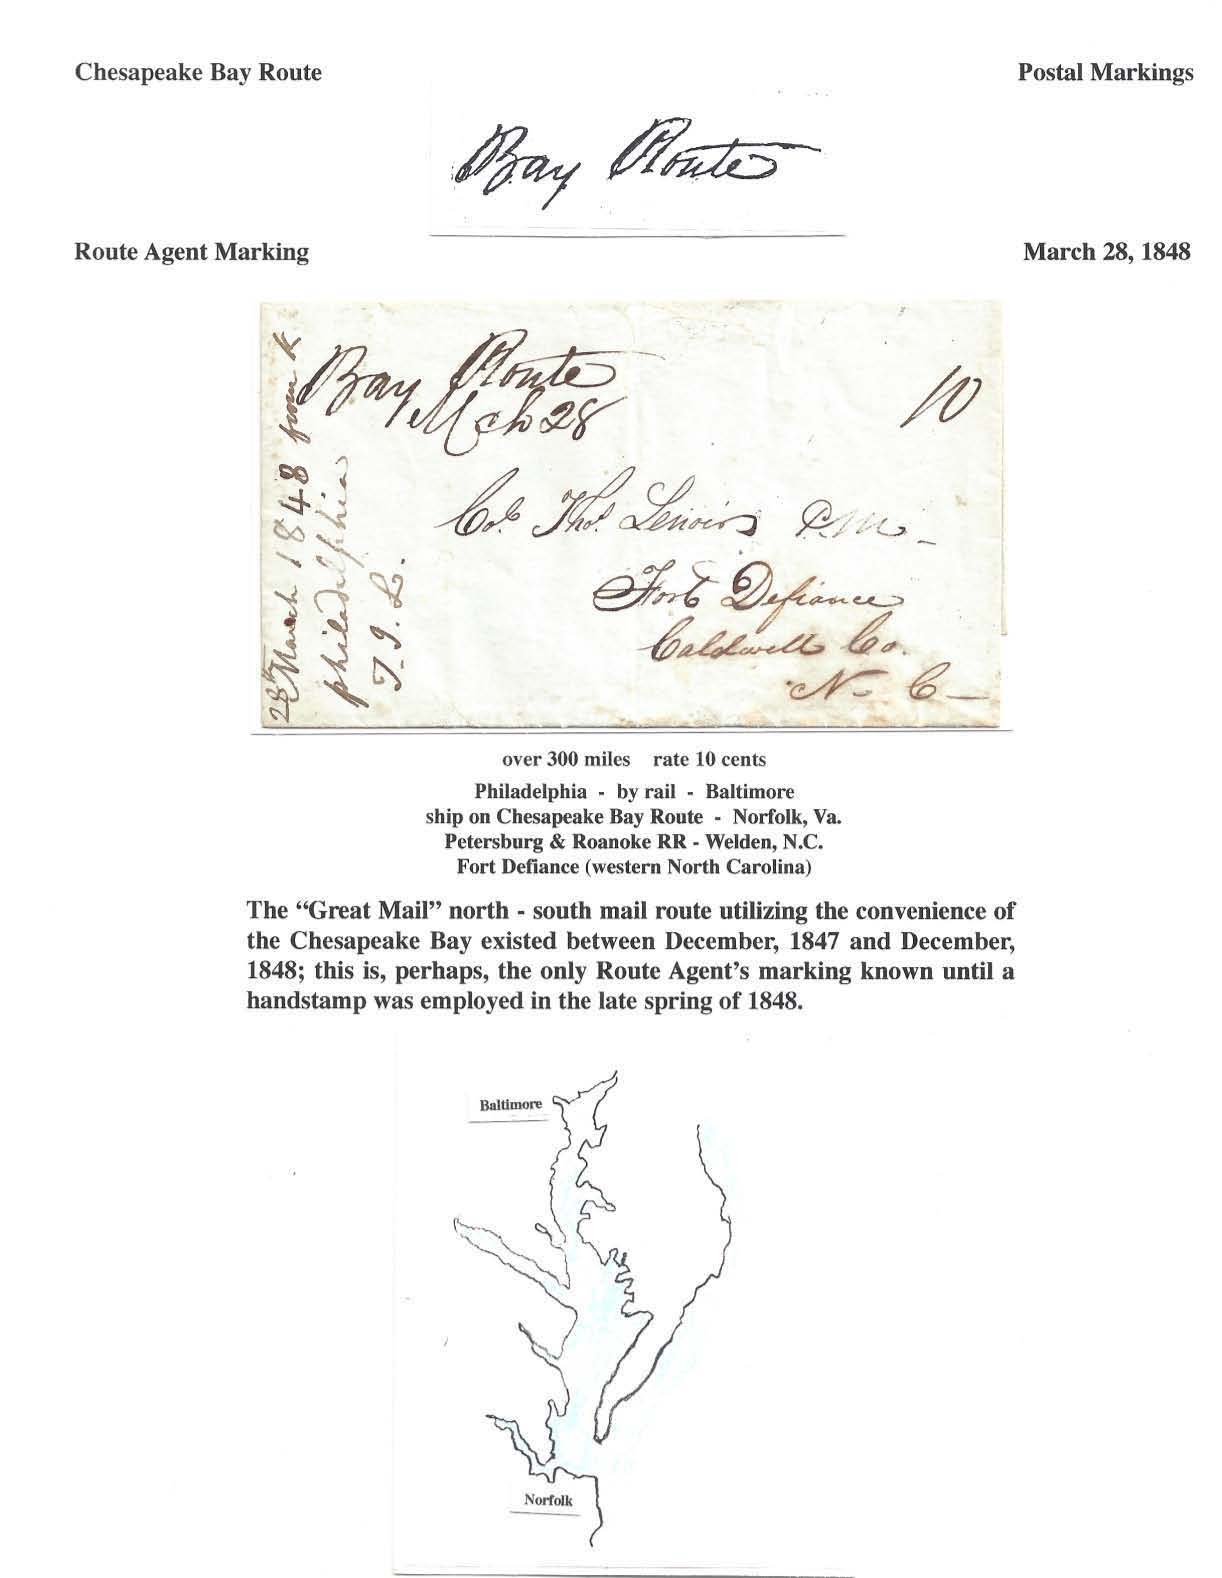 Chesapeake Bay Route
Postal Markings
Bay Route
Route Agent Marking
March 28, 1848
Bay Route
Mch 28
10
Col. Thos. Lenoir P.M.
Fort Defiance
Caldwell Co.
N. C
28th March 1848 from
philadelphia
T. I. L.
over 300 miles rate 10 cents
Philadelphia - by rail - Baltimore
ship on Chesapeake Bay Route - Norfolk, Va.
Petersburg & Roanoke RR - Welden, N.C.
Fort Defiance (western North Carolina)
The “Great Mail” north - south mail route utilizing the convenience of
the Chesapeake Bay existed between December, 1847 and December,
1848; this is, perhaps, the only Route Agent’s marking known until a
handstamp was employed in the late spring of 1848.
Baltimore
Norfolk